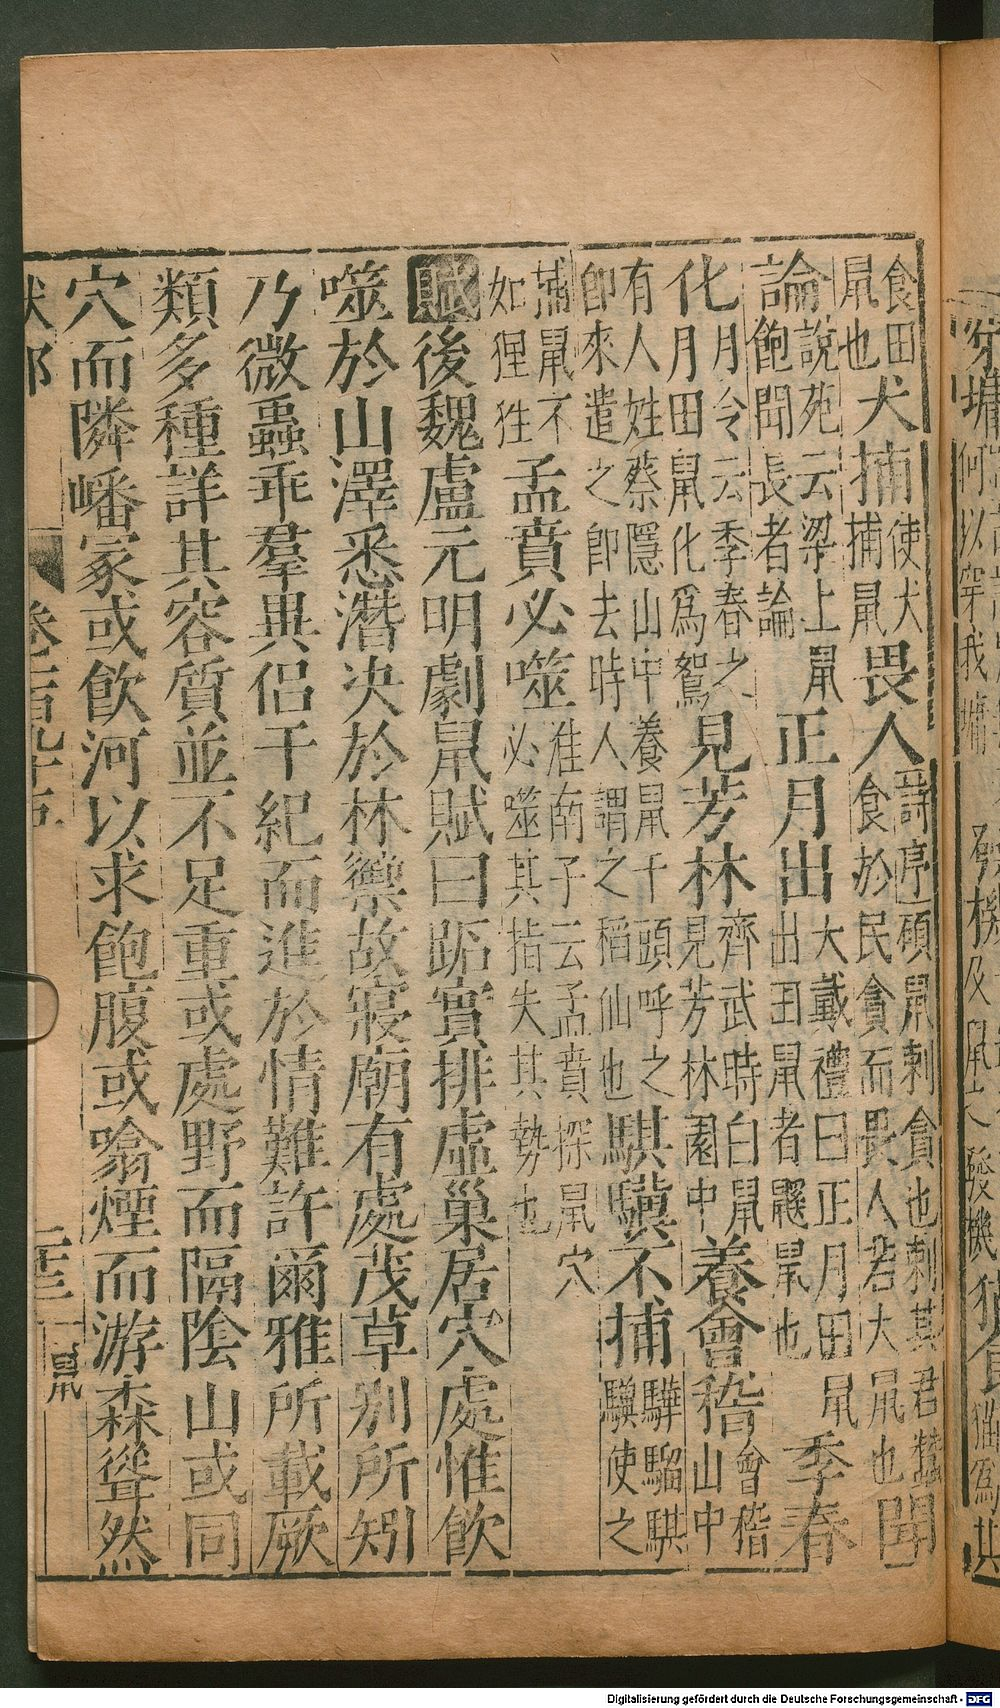 食田鼠也犬捕使犬捕鼠畏人詩序碩鼠刺貪也刺其君蠶食於民貪而畏人若大鼠也聞
論說苑云梁上鼠飽聞長者論正月出大戴禮曰正月田鼠出田鼠者鼸鼠也季春
化月令云季春之月田鼠化爲鴽見芳林齊武時白鼠見芳林園中養會稽會稽山中
有人姓蔡隱山中養鼠千頭呼之卽來遣之卽去時人謂之稻仙也騏驥不捕驊騮騏驥使之
捕鼠不如狸狌孟賁必噬淮南子云孟賁探鼠穴必噬其指失其勢也
賦後魏盧元明劇鼠賦曰跖實排虛巢居穴處惟飲
噬於山澤悉潛決於林藥故寢廟有處茂草別所矧
乃微蟲乖羣異侶干紀而進於情難許爾雅所載厥
類多種詳其容質並不足重或處野而隔陰山或同
穴而隣嶓冢或飲河以求飽腹或噏煙而游森聳然
卷二百九十五
鼠
Digitalisierung gefördert durch die Deutsche Forschungsgemeinschaft - DFG